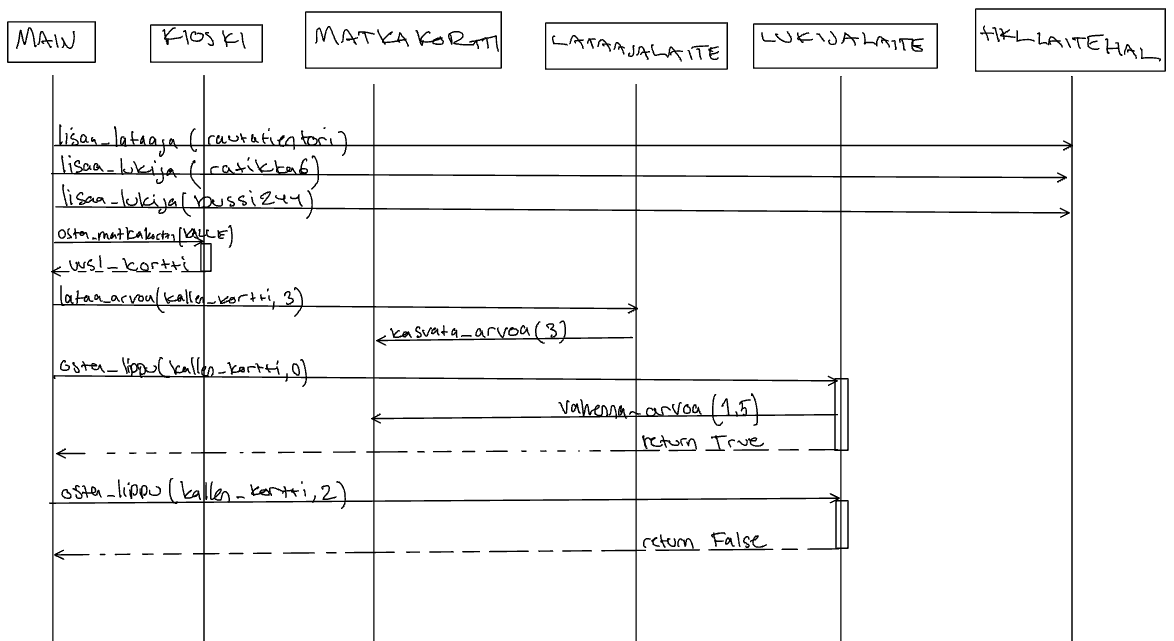 MAIN
KIOSKI
MATKAKORTTI
LATAAJALAITE
LUKIJALAITE
HKLLAITEHAL
lisaa_lataaja (rautatientori)
lisaa_lukija (ratikka6)
lisaa_lukija(bussi244)
osta_matkakortti(KALLE)
uusi_kortti
lataa_arvoa(kallen_kortti, 3)
kasvata_arvoa(3)
osta_lippu(kallen_kortti, 0)
vahenna_arvoa (1,5)
return True
osta_lippu(kallen_kortti, 2)
return False